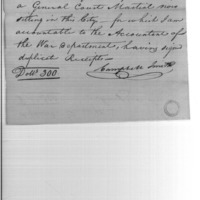 a General Court Martial now
sitting in this City — for which I am
accountable to the Accountant of
the War Department, having signed
duplicate Receipts —
Dolls 300
Campbell Smith